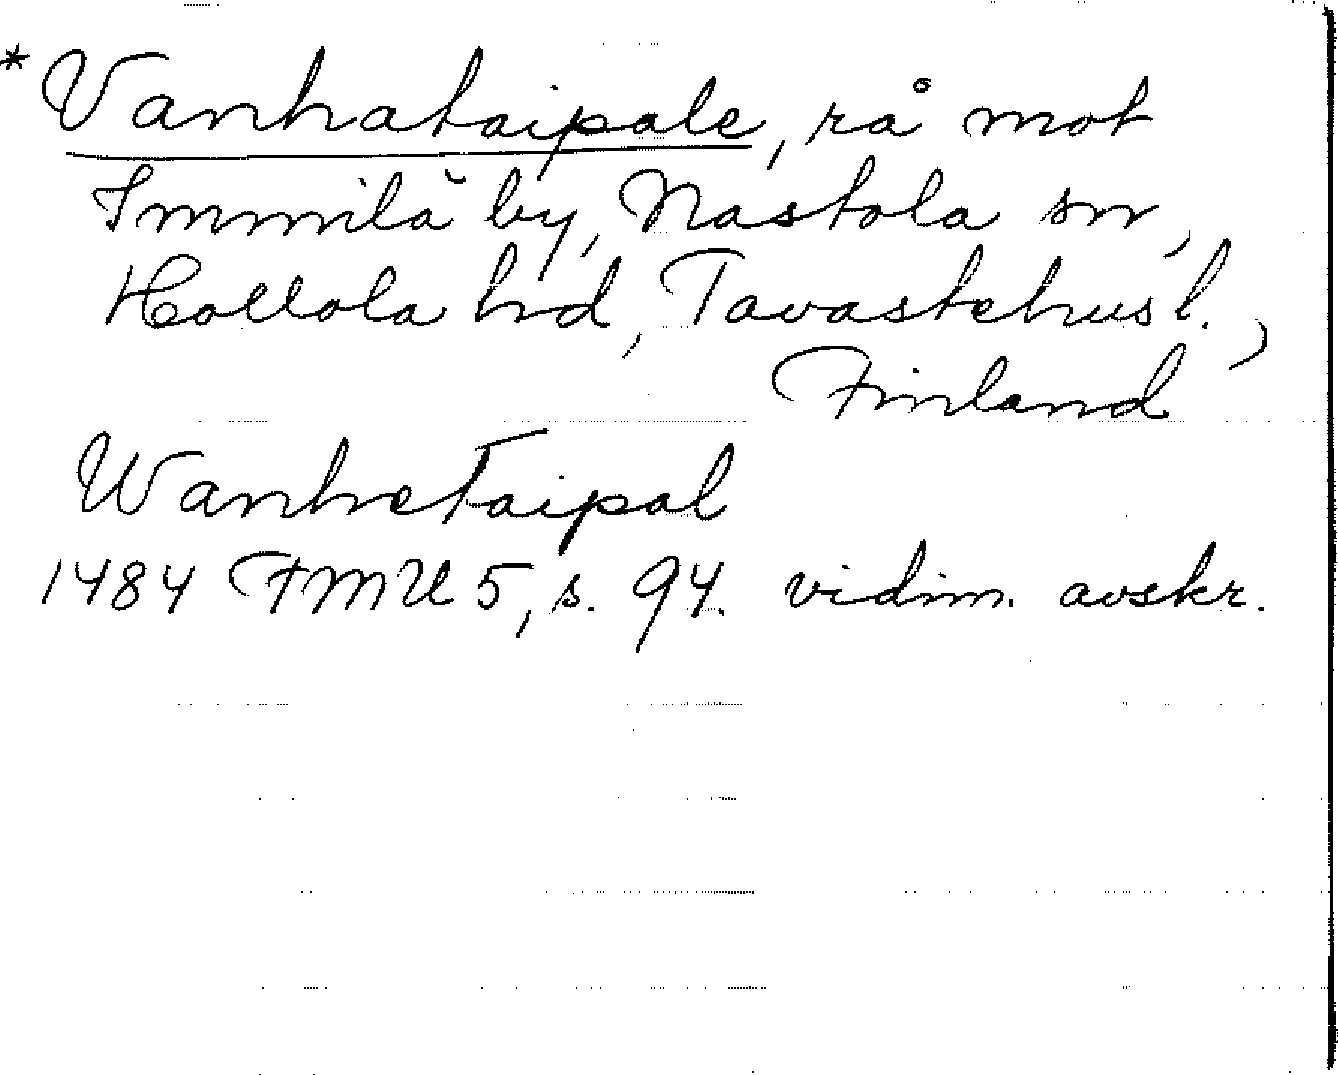 * Vanhataipale, rå mot
Immilä by, Nastola sn,
Hollola hd, Tavastehus l.,
Finland
WanheTaipal
1484 FMU 5, s. 94. vidim. avskr.